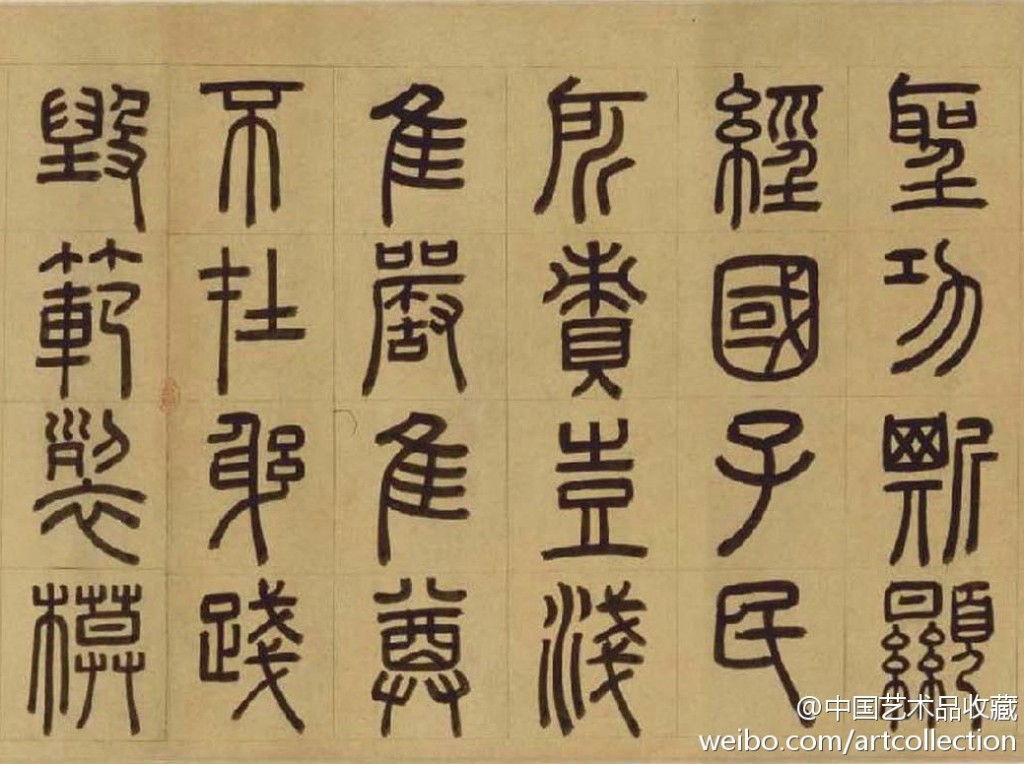 聖功斯顯
經國子民
所賚豈淺
隹嚴隹尊
不敢踐
毀範裂模
@中国艺术品收藏
weibo.com/artcollection